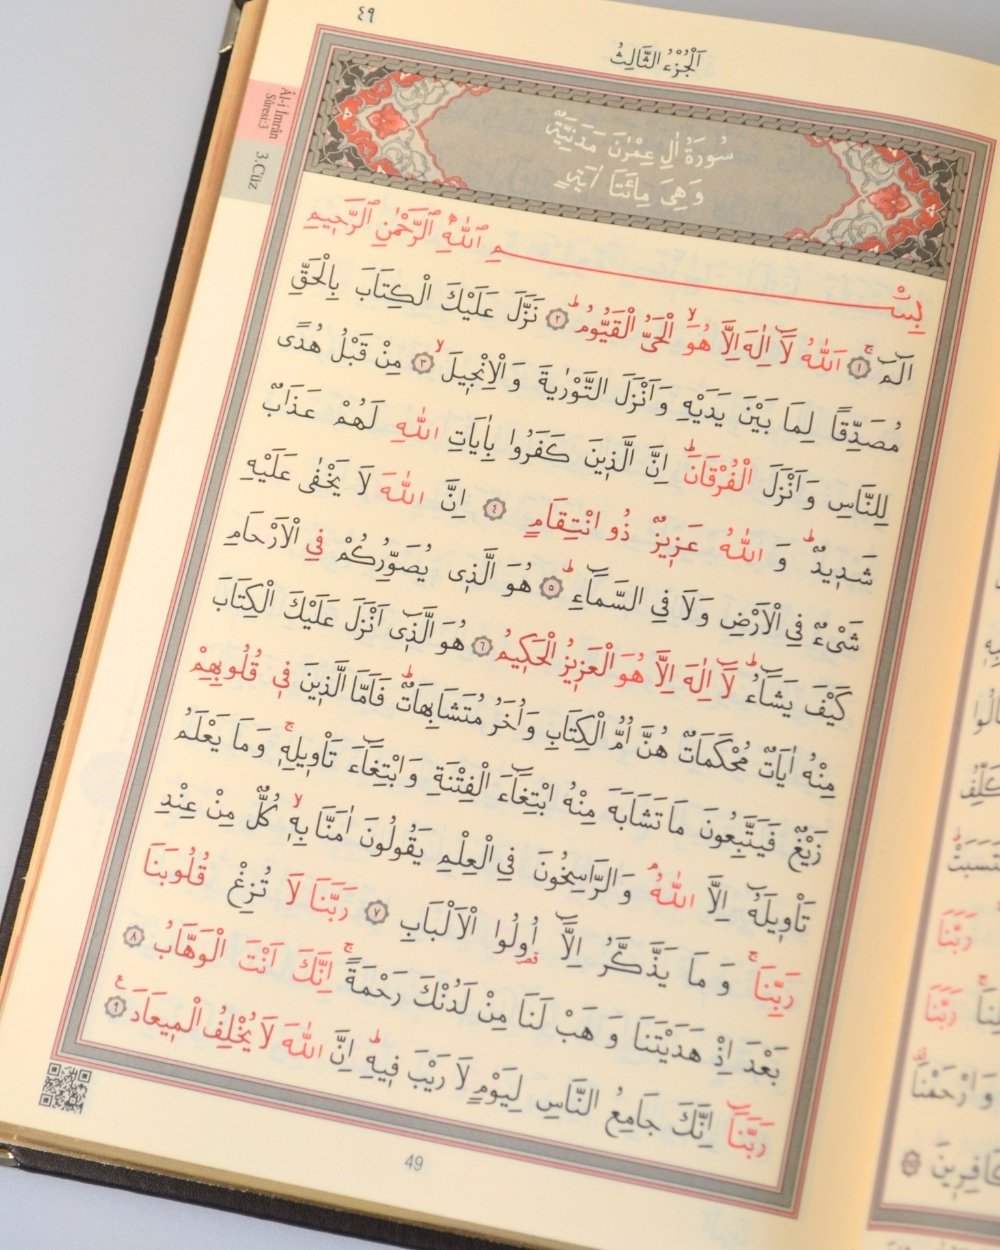 ٤٩
اَلْجُزْءُ الثَّالِثُ
Âl-i İmrân
Sûresi:3
3.Cüz
سُورَةُ اٰلِ عِمْرٰنَ مَدَنِيَّةٌ
وَهِيَ مِائَتَا اٰيَةٍ
بِسْمِ اللّٰهِ الرَّحْمٰنِ الرَّحِيمِ
الٓمٓ ۚ ﴿١﴾ اَللّٰهُ لَٓا اِلٰهَ اِلَّا هُوَۙ الْحَيُّ الْقَيُّومُۜ ﴿٢﴾ نَزَّلَ عَلَيْكَ الْكِتَابَ بِالْحَقِّ
مُصَدِّقًا لِمَا بَيْنَ يَدَيْهِ وَاَنْزَلَ التَّوْرٰيةَ وَالْاِنْجٖيلَۙ ﴿٣﴾ مِنْ قَبْلُ هُدًى
لِلنَّاسِ وَاَنْزَلَ الْفُرْقَانَۜ اِنَّ الَّذٖينَ كَفَرُوا بِاٰيَاتِ اللّٰهِ لَهُمْ عَذَابٌ
شَدٖيدٌۜ وَاللّٰهُ عَزٖيزٌ ذُو انْتِقَامٍ ﴿٤﴾ اِنَّ اللّٰهَ لَا يَخْفٰى عَلَيْهِ
شَيْءٌ فِي الْاَرْضِ وَلَا فِي السَّمَٓاءِۜ ﴿٥﴾ هُوَ الَّذٖي يُصَوِّرُكُمْ فِي الْاَرْحَامِ
كَيْفَ يَشَٓاءُۜ لَٓا اِلٰهَ اِلَّا هُوَ الْعَزٖيزُ الْحَكٖيمُ ﴿٦﴾ هُوَ الَّذٖٓي اَنْزَلَ عَلَيْكَ الْكِتَابَ
مِنْهُ اٰيَاتٌ مُحْكَمَاتٌ هُنَّ اُمُّ الْكِتَابِ وَاُخَرُ مُتَشَابِهَاتٌۜ فَاَمَّا الَّذٖينَ فٖي قُلُوبِهِمْ
زَيْغٌ فَيَتَّبِعُونَ مَا تَشَابَهَ مِنْهُ ابْتِغَٓاءَ الْفِتْنَةِ وَابْتِغَٓاءَ تَاْوٖيلِهٖۚ وَمَا يَعْلَمُ
تَاْوٖيلَهُٓ اِلَّا اللّٰهُۢ وَالرَّاسِخُونَ فِي الْعِلْمِ يَقُولُونَ اٰمَنَّا بِهٖۙ كُلٌّ مِنْ عِنْدِ
رَبِّنَاۚ وَمَا يَذَّكَّرُ اِلَّٓا اُولُوا الْاَلْبَابِ ﴿٧﴾ رَبَّنَا لَا تُزِغْ قُلُوبَنَا
بَعْدَ اِذْ هَدَيْتَنَا وَهَبْ لَنَا مِنْ لَدُنْكَ رَحْمَةًۚ اِنَّكَ اَنْتَ الْوَهَّابُ ﴿٨﴾
رَبَّنَٓا اِنَّكَ جَامِعُ النَّاسِ لِيَوْمٍ لَا رَيْبَ فٖيهِۜ اِنَّ اللّٰهَ لَا يُخْلِفُ الْمٖيعَادَ ﴿٩﴾
49
رَبَّنَا
رَبَّنَا
وَارْحَمْنَا